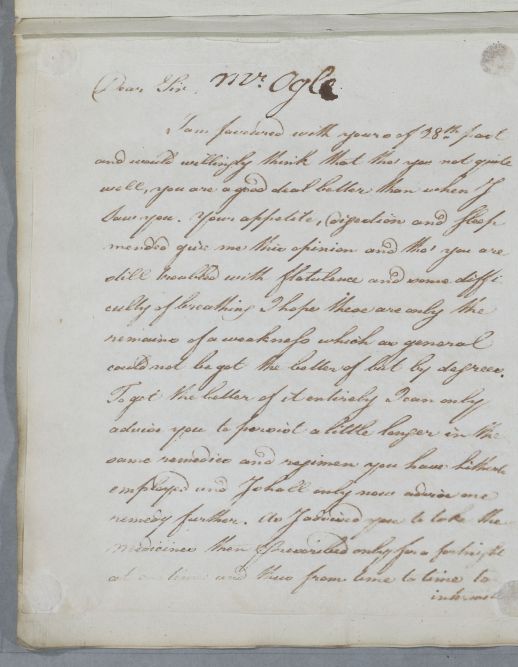 Dear Sir, Mr. Ogle
I am favoured with yours of 28th past
and would willingly think that tho' you not quite
well, you are a good deal better than when I
saw you. Your appetite, digestion and sleep
mended give me this opinion and tho' you are
still troubled with flatulence and some diffi-
culty of breathing I hope these are only the
remains of a weakness which as general
could not be got the better of but by degrees.
To get the better of it entirely I can only
advise you to persist a little longer in the
same remedies and regimen you have hitherto
employed and I shall only now advise one
remedy further. As I advised you to take the
Medicines then prescribed only for a fortnight
at one time and thus from time to time to